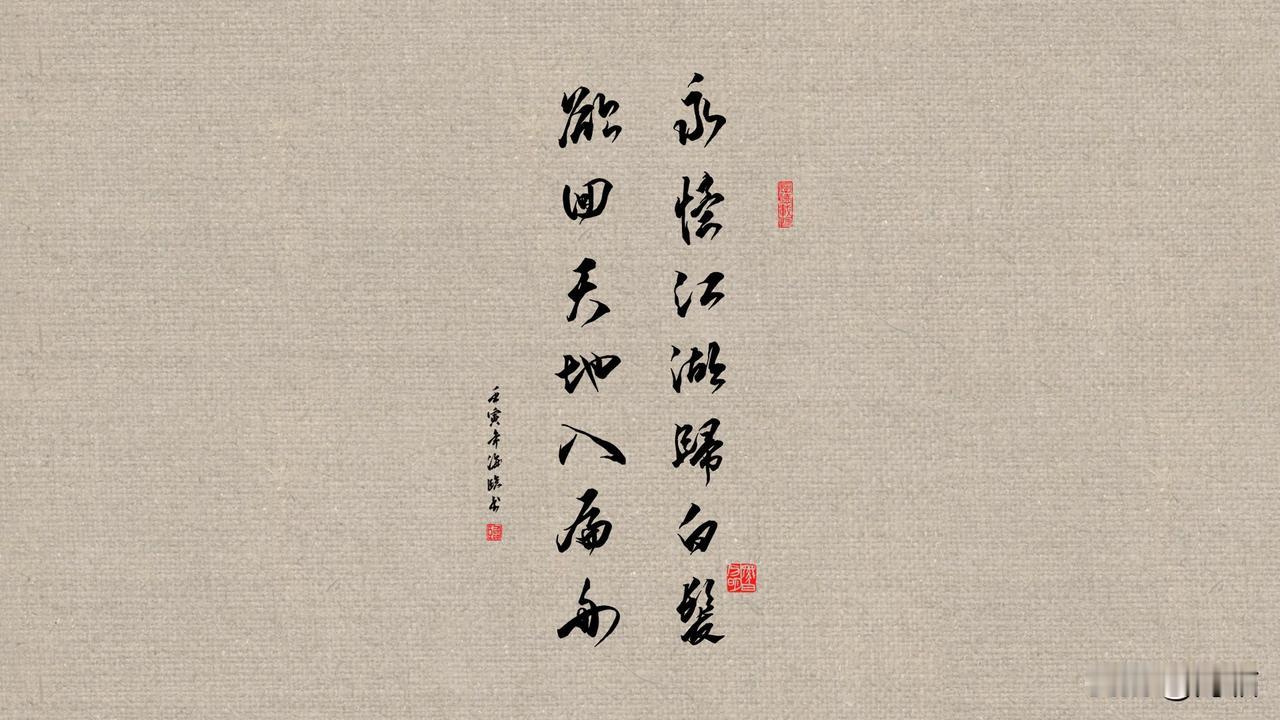 永憶江湖歸白髮
欲回天地入扁舟
壬寅年海臨书